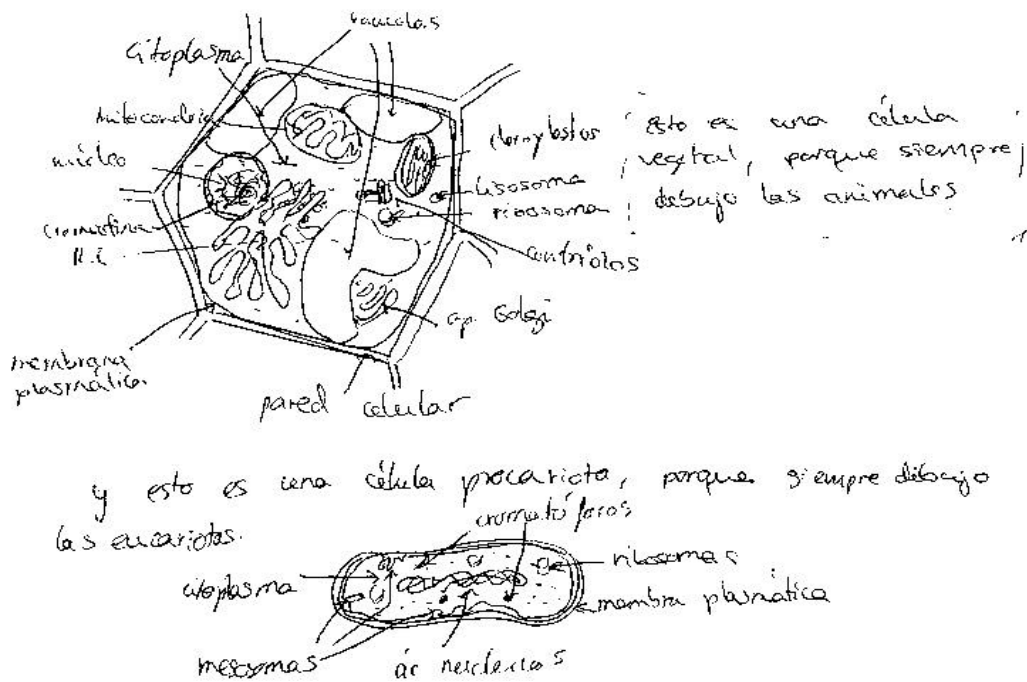 vacuolas
Citoplasma
Mitocondria
núcleo
cromatina
R.E
membrana
plasmática
pared celular
cloroplastos
lisosoma
ribosoma
centriolos
ap. Golgi
esto es una célula
vegetal, porque siempre
dibujo las animales
y esto es una célula procariota, porque siempre dibujo
las eucariotas.
cromatóforos
citoplasma
ribosomas
membra plasmática
mesosomas